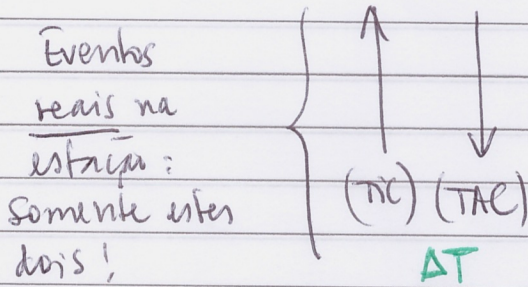 Eventos
reais na
estação:
somente estes
dois!
(TIC) (TAC)
ΔT